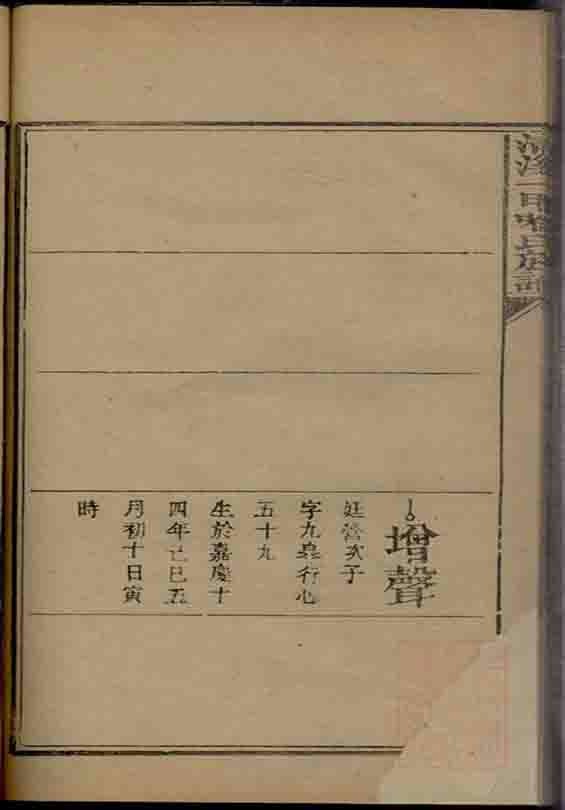 增聲
廷營次子
字九臯行心
五十九
生於嘉慶十
四年己巳五
月初十日寅
時